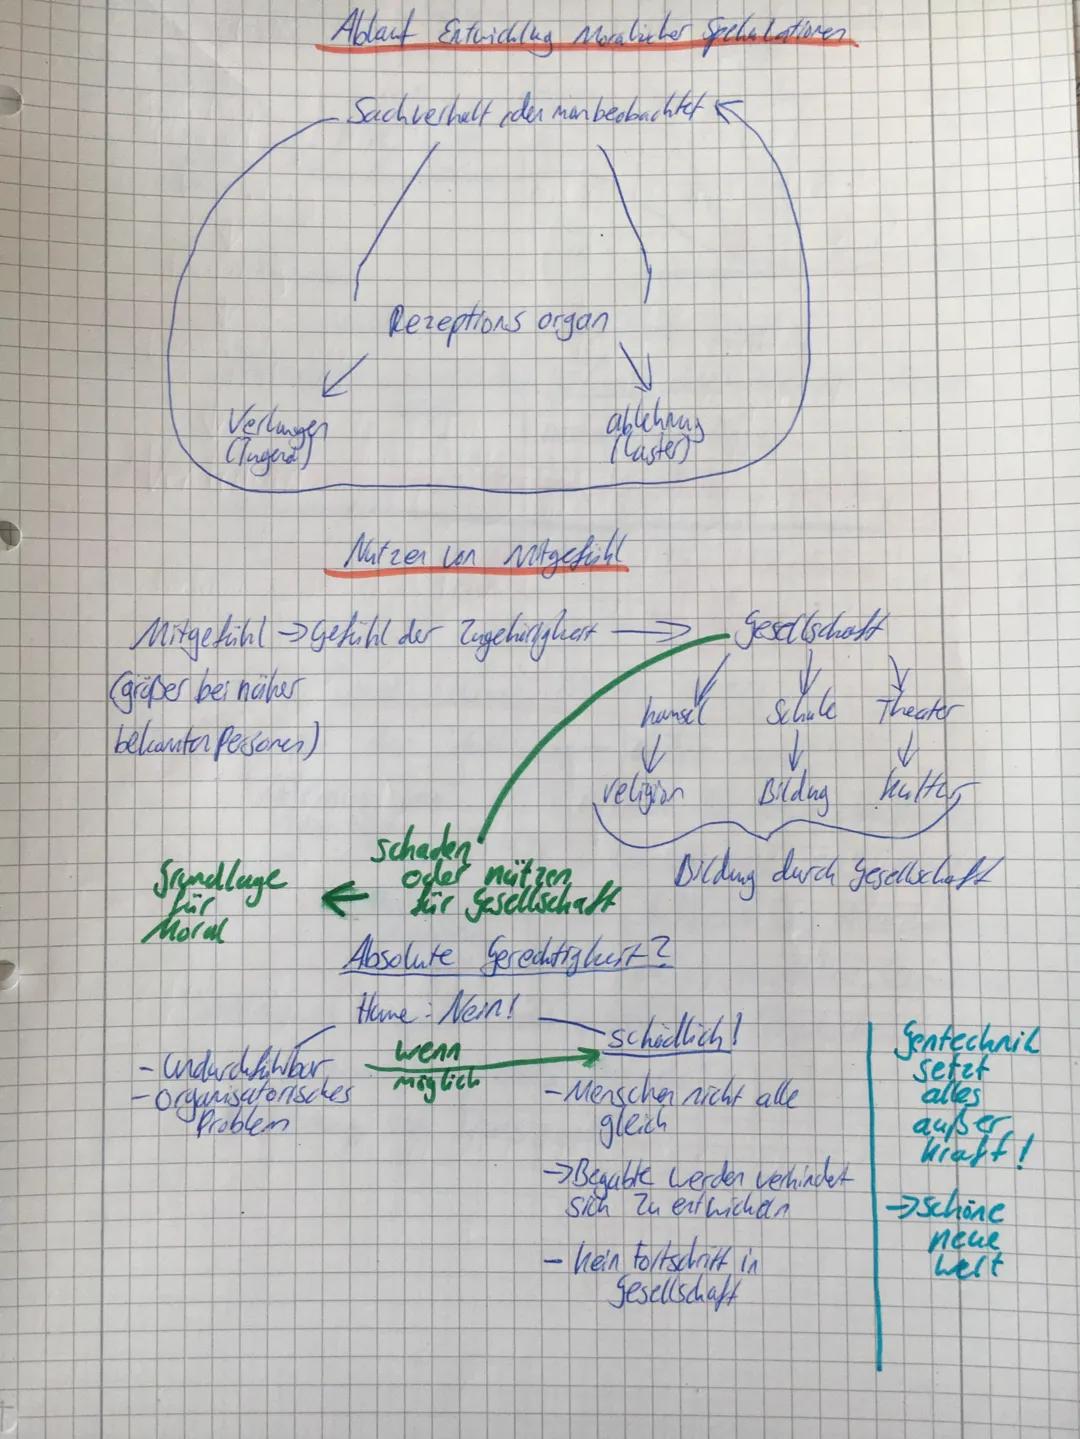 Ablauf Entwicklug Moralischer Spekulationen
Sachverhalt, den man beobachtet
Rezeptionsorgan
Verlangen
(Tugend)
ablehnug
(Laster)
Nutzen von Mitgefühl
Mitgefühl → Gefühl der Zugehörigkeit → Gesellschaft
(größer bei näher
bekannten Personen)
Schule
Theater
religion
Bildug
Kultur
Bildug durch Gesellschaft
schaden
oder nützen
für Gesellschaft
Grundlage
für
Moral
Absolute Gerechtigkeit?
Hume: Nein!
- Undurchführbar
- organisatorisches
Problem
wenn
möglich
schädlich!
- Menschen nicht alle
gleich
→ Begabte werden verhindet
sich zu entwickeln
- kein Fortschritt in
Gesellschaft
Gentechnik
setzt
alles
außer
kraft!
→ schöne
neue
welt